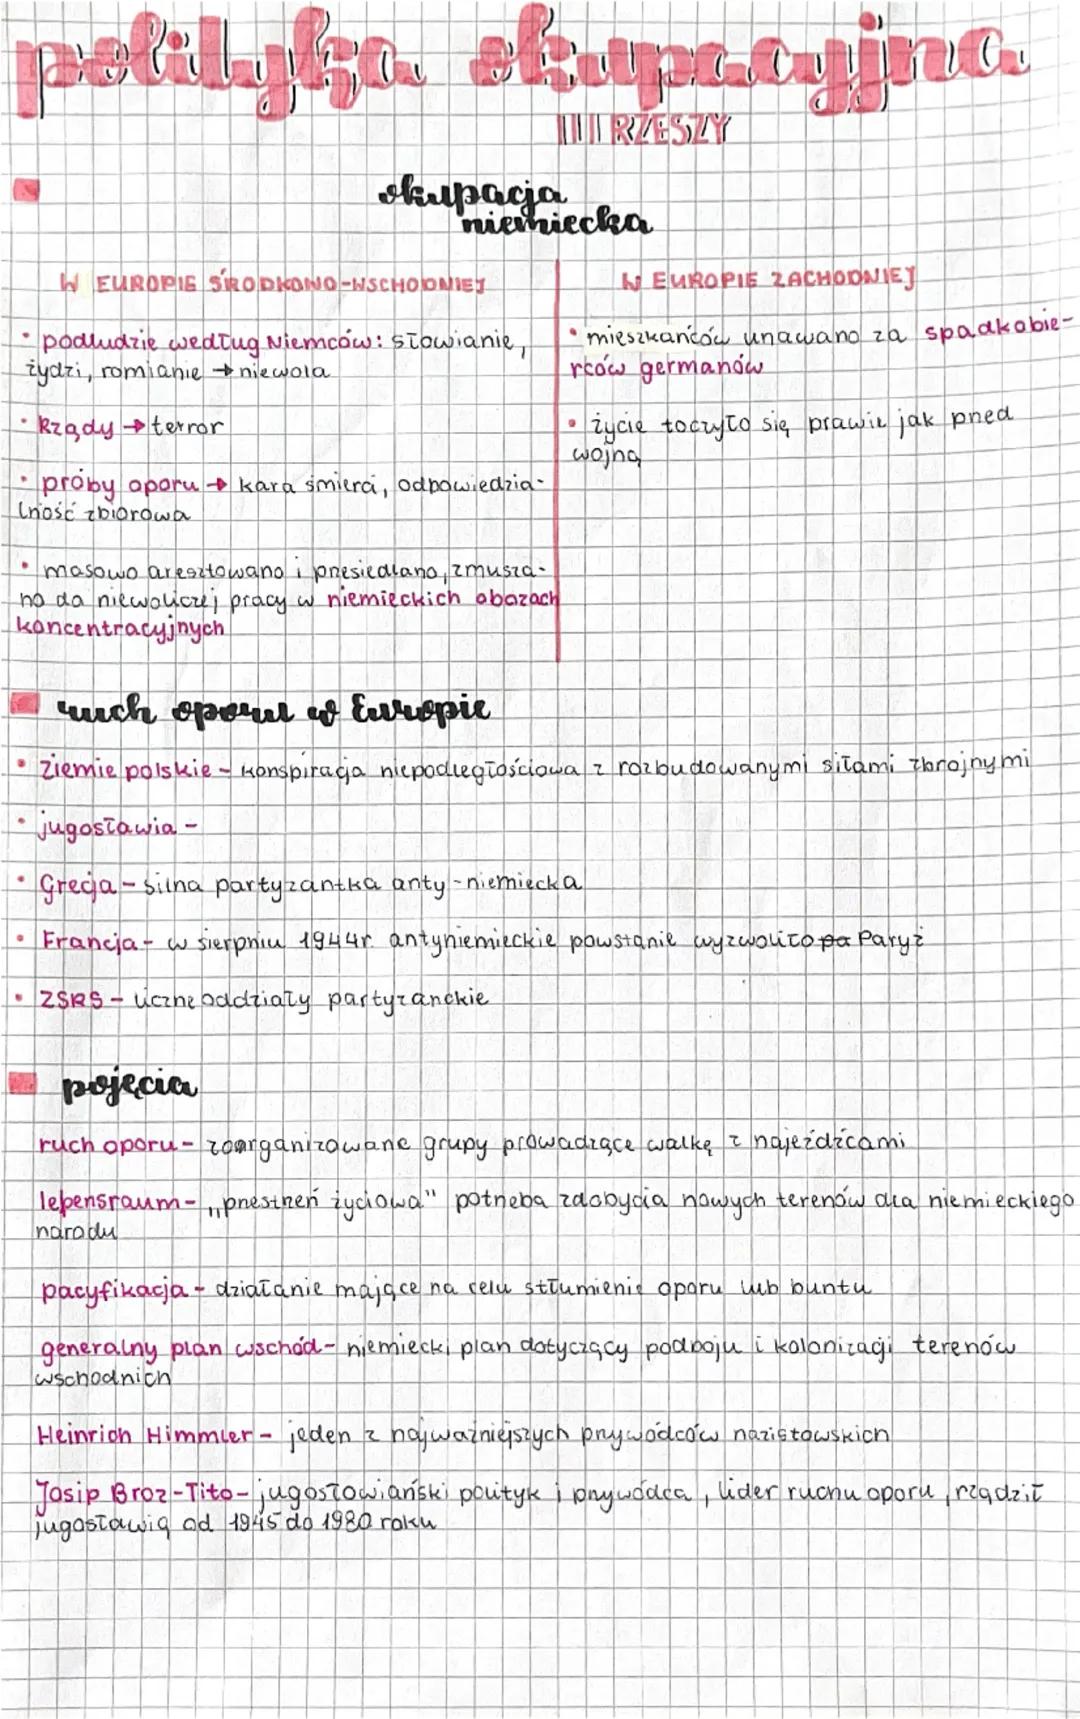 polityka okupacyjna
III RZESZY
okupacja
niemiecka
W EUROPIE ŚRODKOWO-WSCHODNIEJ
• podludzie według Niemców: słowianie,
żydzi, romianie → niewola
• Rządy → terror
• próby oporu → kara śmierci, odpowiedzia-
lność zbiorowa
• masowo aresztowano i przesiedlano, zmusza-
no do niewoliczej pracy w niemieckich obozach
koncentracyjnych
W EUROPIE ZACHODNIEJ
• mieszkańców unawano za spadkobie-
rców germanów
• życie toczyło się prawie jak przed
wojną
ruch oporu w Europie
• Ziemie polskie - konspiracja niepodległościowa z rozbudowanymi siłami zbrojnymi
• jugosławia -
• Grecja - silna partyzantka anty-niemiecka
• Francja - w sierpniu 1944r. antyniemieckie powstanie wyzwoliło pa Paryż
• ZSRS - liczne oddziały partyzanckie
pojęcia
ruch oporu - zoorganizowane grupy prowadzące walkę z najeźdźcami
lebensraum - „przestrzeń życiowa" potrzeba zdobycia nowych terenów dla niemieckiego
narodu
pacyfikacja - działanie mające na celu stłumienie oporu lub buntu
generalny plan wschód - niemiecki plan dotyczący podboju i kolonizacji terenów
wschodnich
Heinrich Himmler - jeden z najważniejszych przywódców nazistowskich
Josip Broz-Tito - jugosłowiański polityk i przywódca, lider ruchu oporu, rządził
jugosławią od 1945 do 1980 roku